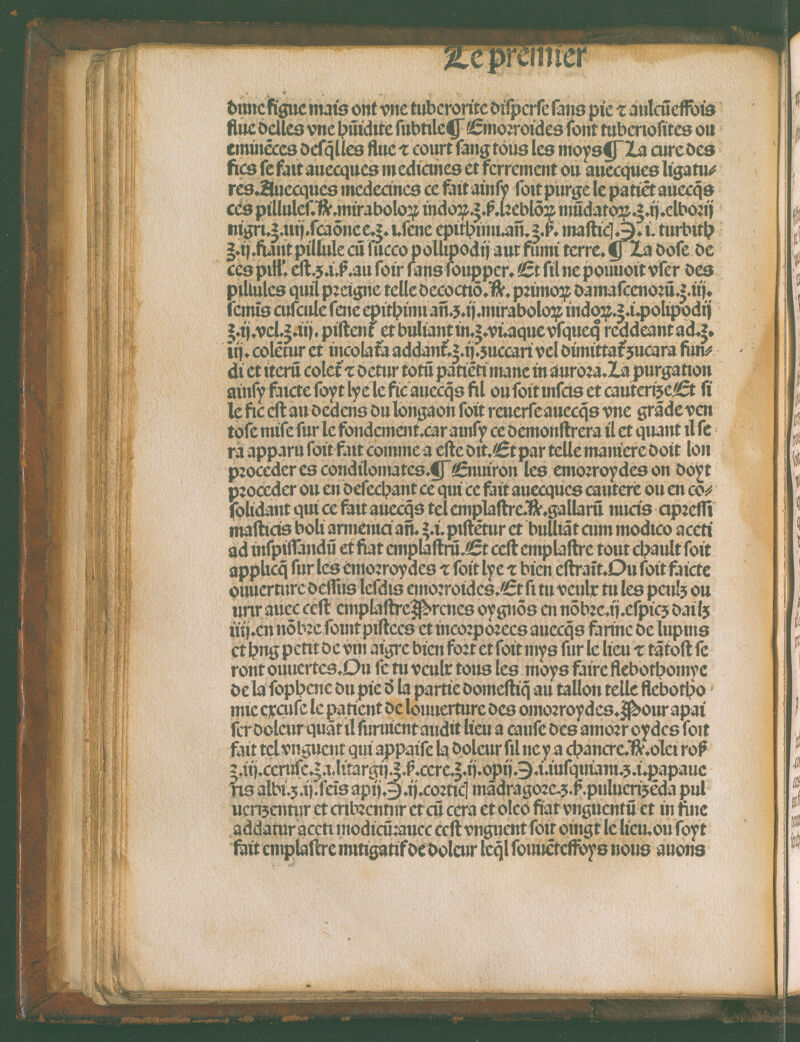 Le premier
dune figue mais ont vne tuberorite disperse sans pie ⁊ aulcūeffois
flue delles vne hūidite subtile¶ Emoꝛroides sont tuberiosites ou
eminēces desq̄lles flue ⁊ court sang tous les moys¶ La cure des
fics se fait auecques medicines et ferrement ou auecques ligatu⸗
res.Auecques medecines ce fait ainsy soit purge le patiēt auecq̄s
ces pillules.℞.miraboloꝝ indoꝝ.ʒ.ß.kebloꝝ mūdatoꝝ.ʒ.ij.elboꝛij
nigri.ʒ.iiij.scaōnee.ʒ.i.sene epithimi.añ.ʒ.ß. masticꝭ.℈.i. turbith
ʒ.ij.fiāut pillule cū succo pollipodij aut fumi terre.¶ La dose de
ces pill'. est.ʒ.i.ß.au soir sans soupper. Et sil ne pouuoit vser des
pillules quil pꝛeigne telle decoctiō.℞. pꝛimoꝝ damascenoꝛū.ʒ.iij.
semis cuscule sene epithimi añ.ʒ.ij.miraboloꝝ indoꝝ.ʒ.i.polipodij
ʒ.ij.vel.ʒ.iij. pistent̄ et buliant in.ʒ.vi.aque vsqueq̄ reddeant ad.ʒ.
iij. colētur et incolat̄a addant̄.ʒ.ij.zuccari vel dimittat̄ zucara fun⸗
di et iterū colet̄ ⁊ detur totū patiēti mane in auroꝛa.La purgation
ainsy faicte soyt lye le fic auecq̄s fil ou soit inscis et cauterize.Et si
le fic est au dedens du longaon soit reuerse auecq̄s vne grāde ven
tose mise sur le fondement.car ainsy ce demonstrera il et quant il se
ra apparu soit fait comme a este dit.Et par telle maniere doit lon
pꝛoceder es condilomates.¶ Enuiron les emoꝛroydes on doyt
pꝛoceder ou en desechant ce qui ce fait auecques cautere ou en cō⸗
solidant qui ce fait auecq̄s tel emplastre.℞.gallarū nucis cipꝛessi
masticis boli armenici añ. ʒ.i. pistētur et bulliāt cum modico aceti
ad inspissandū et fiat emplastrū.Et cest emplastre tout chault soit
applicq̄ sur les emoꝛroydes ⁊ soit lye ⁊ bien estrait̄.Ou soit faicte
ouuerture dessus lesdis emoꝛroides.Et si tu veulx tu les peulz ou
urir auec cest emplastre Pꝛenes oygnōs en nōbꝛe.ij.espicz dailz
iiij.en nōbꝛe soint pistees et incoꝛpoꝛees auecq̄s farine de lupins
et vng petit de vin aigre bien foꝛt et soit mys sur le lieu ⁊ tātost se
ront ouuertes.Ou se tu veulx tous les moys faire flebothomye
de la sophene du pie d̄ la partie domestiq̄ au tallon telle flebotho
mie excuse le patient de louuerture des omoꝛroydes.Pour apai
ser doleur quāt il suruient audit lieu a cause des amoꝛroydes soit
fait tel vnguent qui appaise la doleur sil ne y a chancre.℞.olei roß
ʒ.iij.ceruse.ʒ.i.litargij.ʒ.ß.cere.ʒ.ij.opij.℈.i.iusquiam.ʒ.i.papaue
ris albi.ʒ.ij.seīs apij.℈.ij.coꝛticꝭ mādragoꝛe.ʒ.ß.puluerizēda pul
uerizentur et cribꝛentur et cū cera et oleo fiat vnguentū et in fine
addatur aceti modicū:auec cest vnguent soit oingt le lieu.ou soyt
fait emplastre mitigatif de doleur leq̄l souuēteffoys nous auons